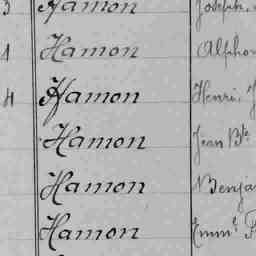 3 Hamon Joseph,
1 Hamon Alphon
4 Hamon Henri, J
Hamon Jean Bte
Hamon Benja
Hamon Emml F